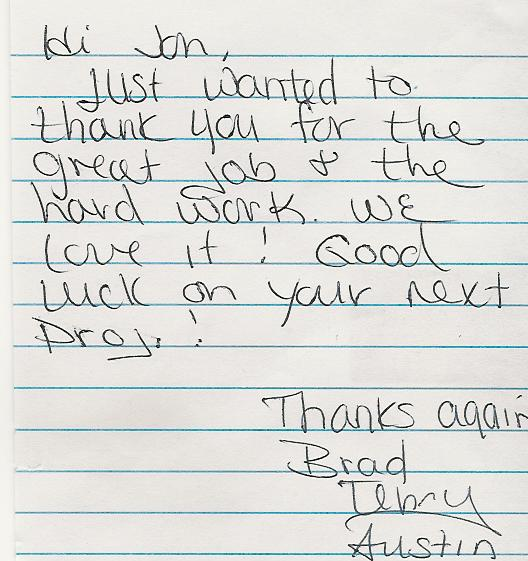 Hi Jon,
Just wanted to
thank you for the
great job & the
hard work. We
love it! Good
luck on your next
proj.!
Thanks again
Brad
Austin